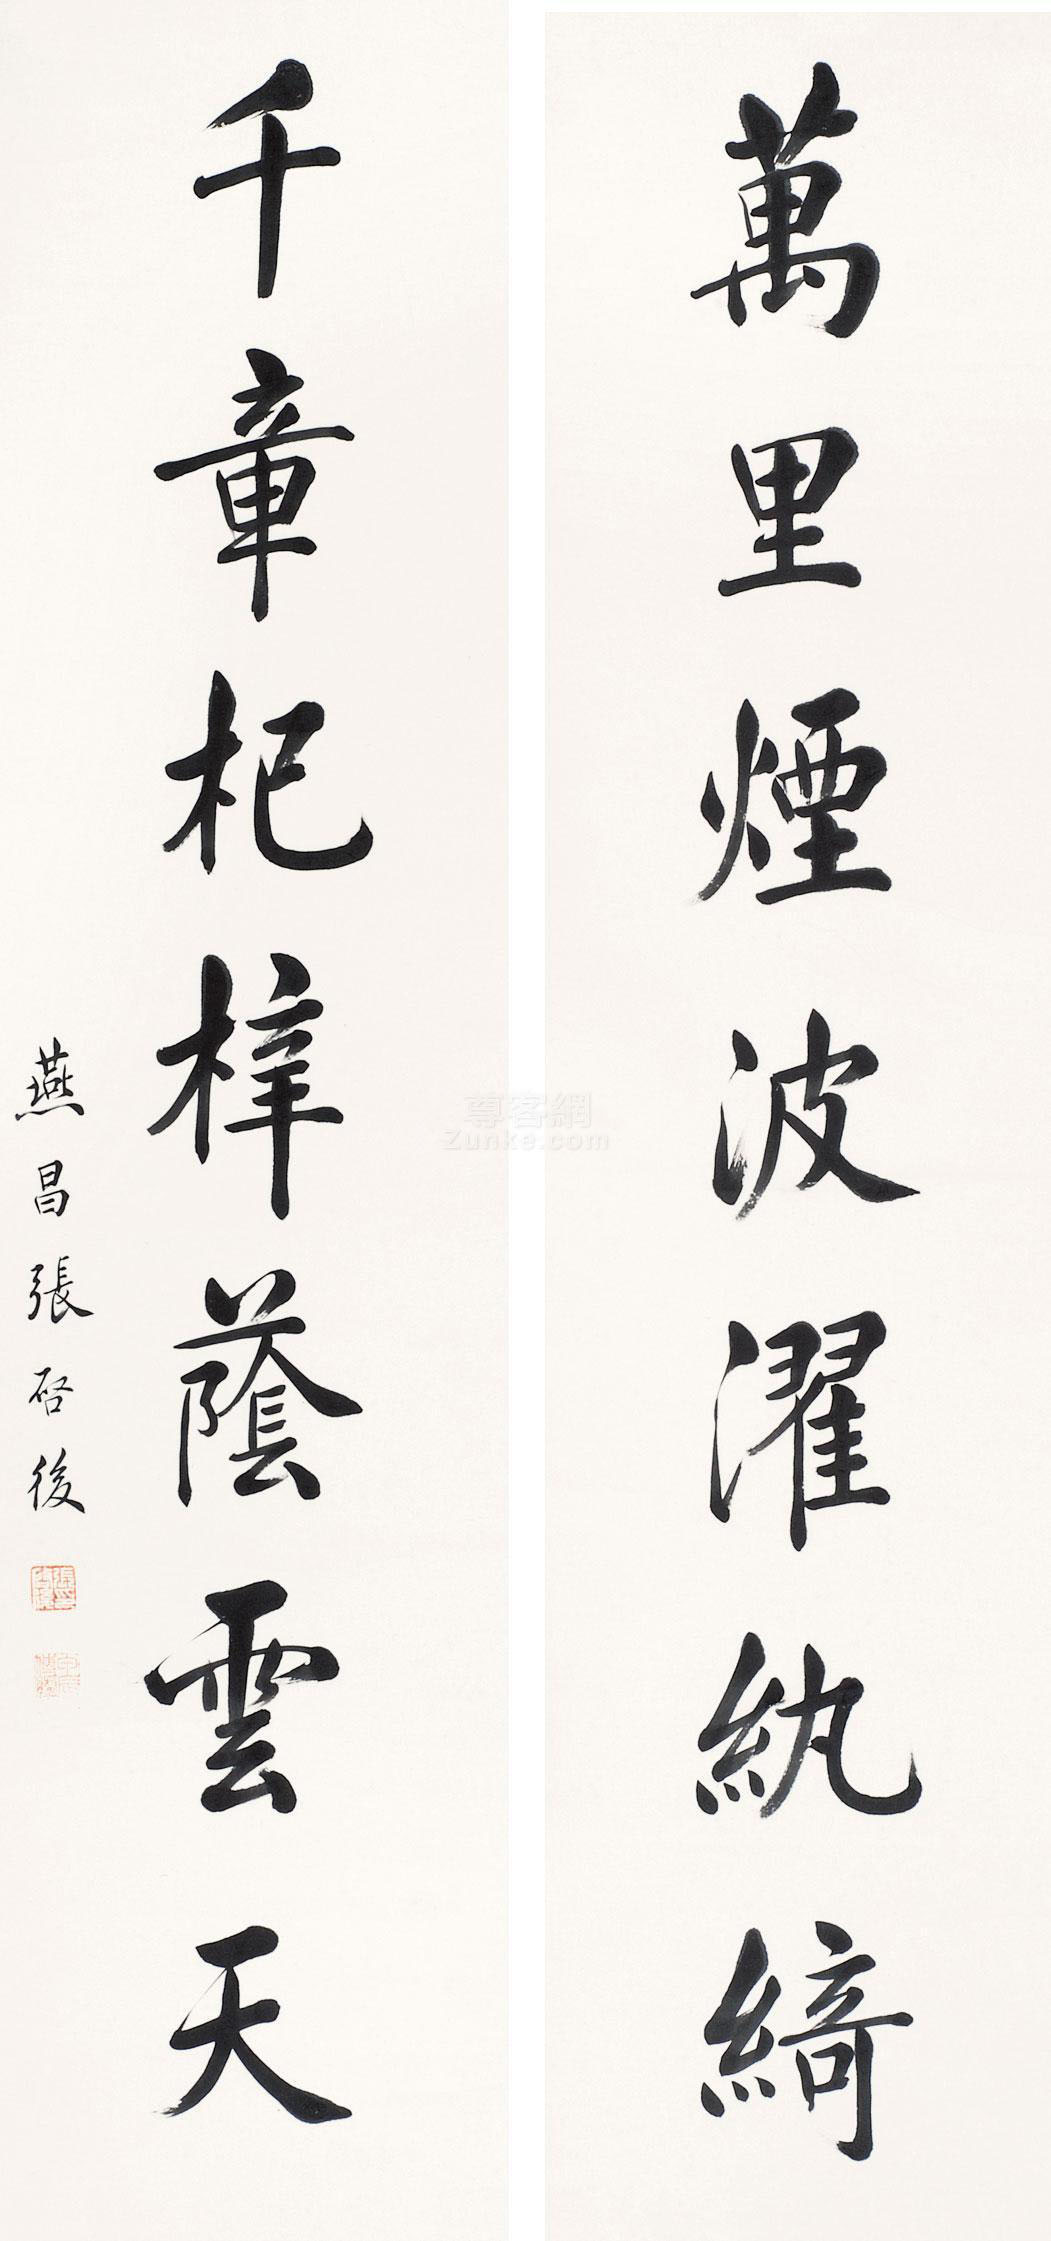 萬里煙波濯紈綺
千章杞梓蔭雲天
燕昌張啓後
尊客網
Zunke.com